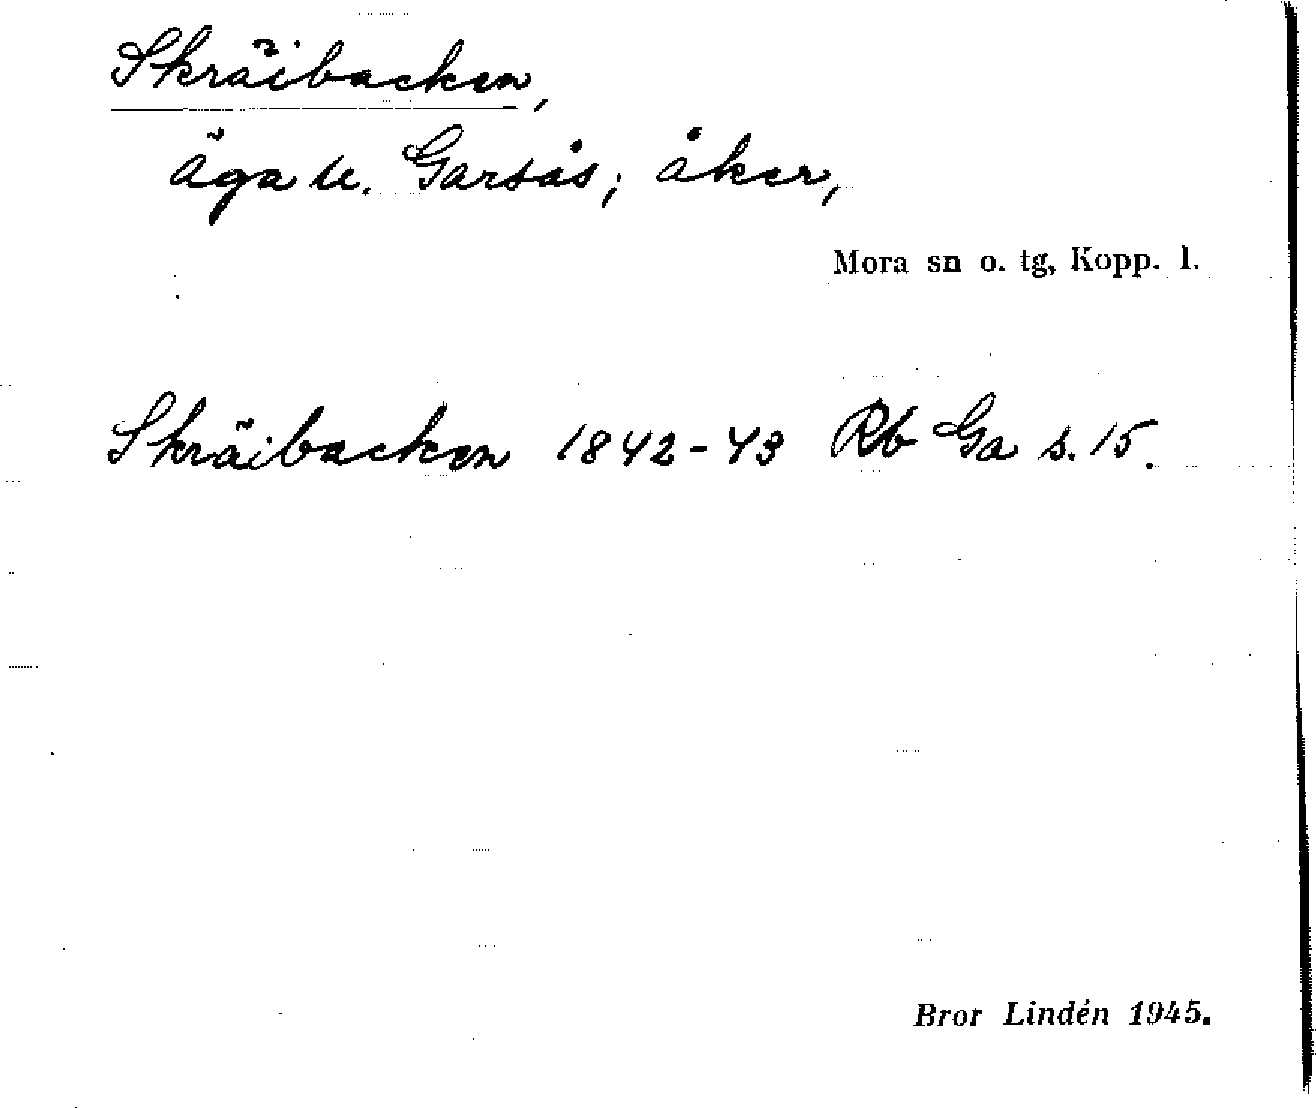 Skräibacken,
äga u. Garsås; åker,
Mora sn o. tg, Kopp. l.
Skräibacken 1842-43 Rb Ga s. 15.
Bror Lindén 1945.